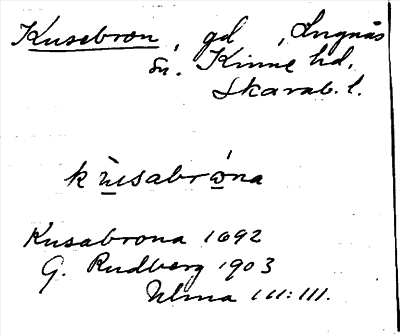 Kusebron, gd, Lugnås
sn. Kinne hd.
Skarab. l.
kùsabrǫ́na
Kusabrona 1692
G. Rudberg 1903
Ulma 111:111.